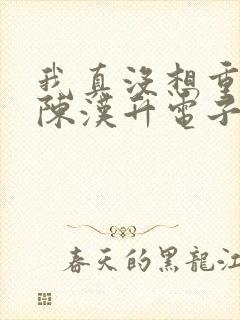 我真没想重
陈漢升電子
春天的黑龍江